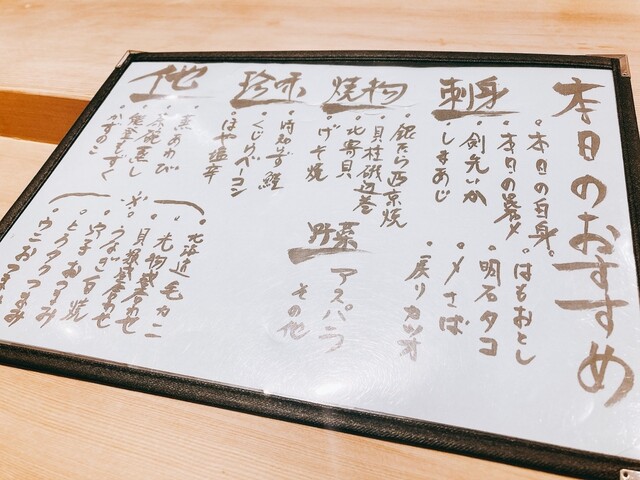 本日のおすすめ
刺身
・本日の白身
・本日の昆〆
剣先いか
・しまあじ
・はもおとし
・明石タコ
・〆さば
・戻りカツオ
焼物
・銀だら西京焼
・貝柱磯辺巻
・北寄貝
・げそ焼
野菜
アスパラ
その他
珍味
・時知らず鮭
・くじらベーコン
・はや塩辛
他
・蒸あわび
・茶碗蒸し
・能登もずく
・かずのこ
・北海道毛カニ
・光物盛合わせ
・貝盛合わせ
・うなぎ白焼
・穴子白焼
・とろたくつまみ
・ウニおつまみ